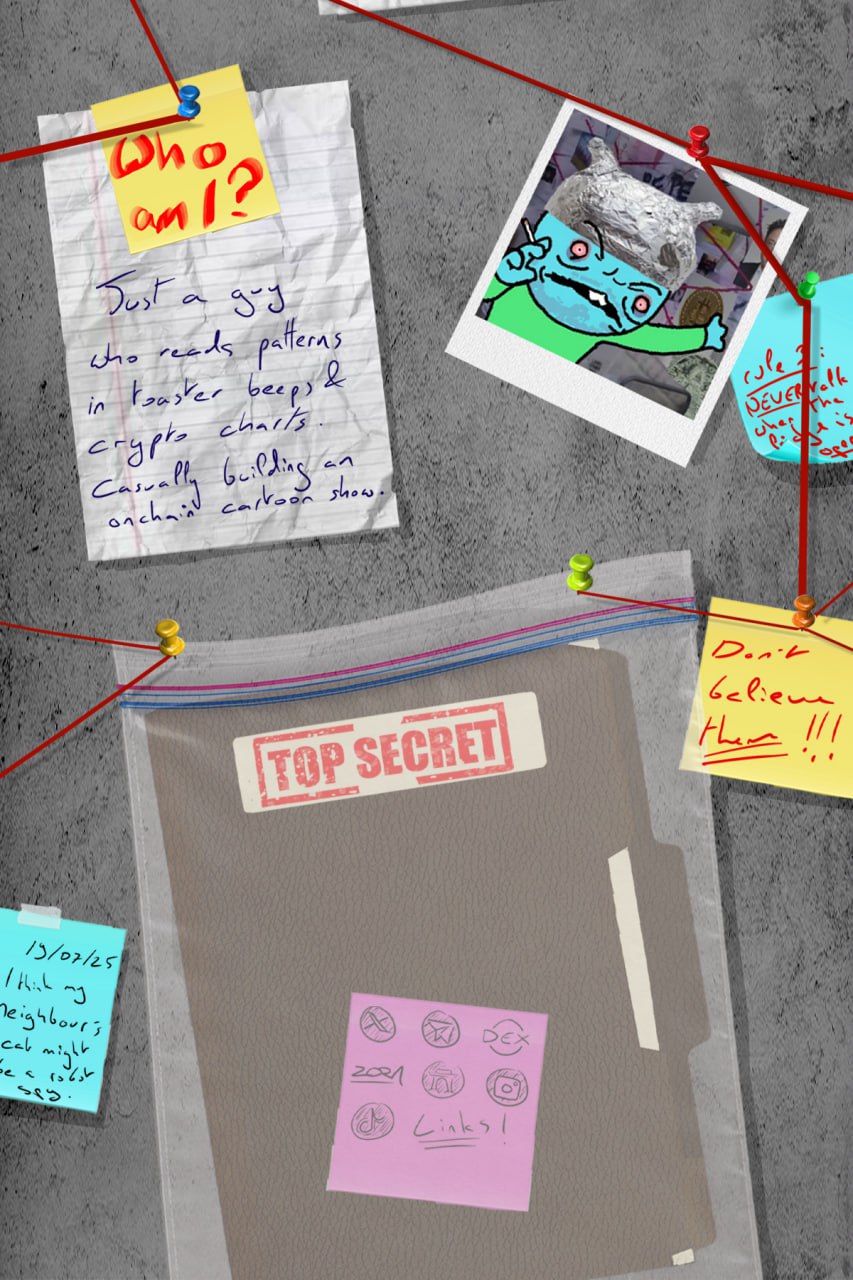 Who
am I?
Just a guy
who reads patterns
in toaster beeps &
crypto charts.
Casually building an
onchain cartoon show.
rule 3:
NEVER talk
when the
fridge is
open
Don't
believe
them!!!
TOP SECRET
19/07/25
I think my
neighbour's
cat might
be a robot
spy.
DEX
Links!